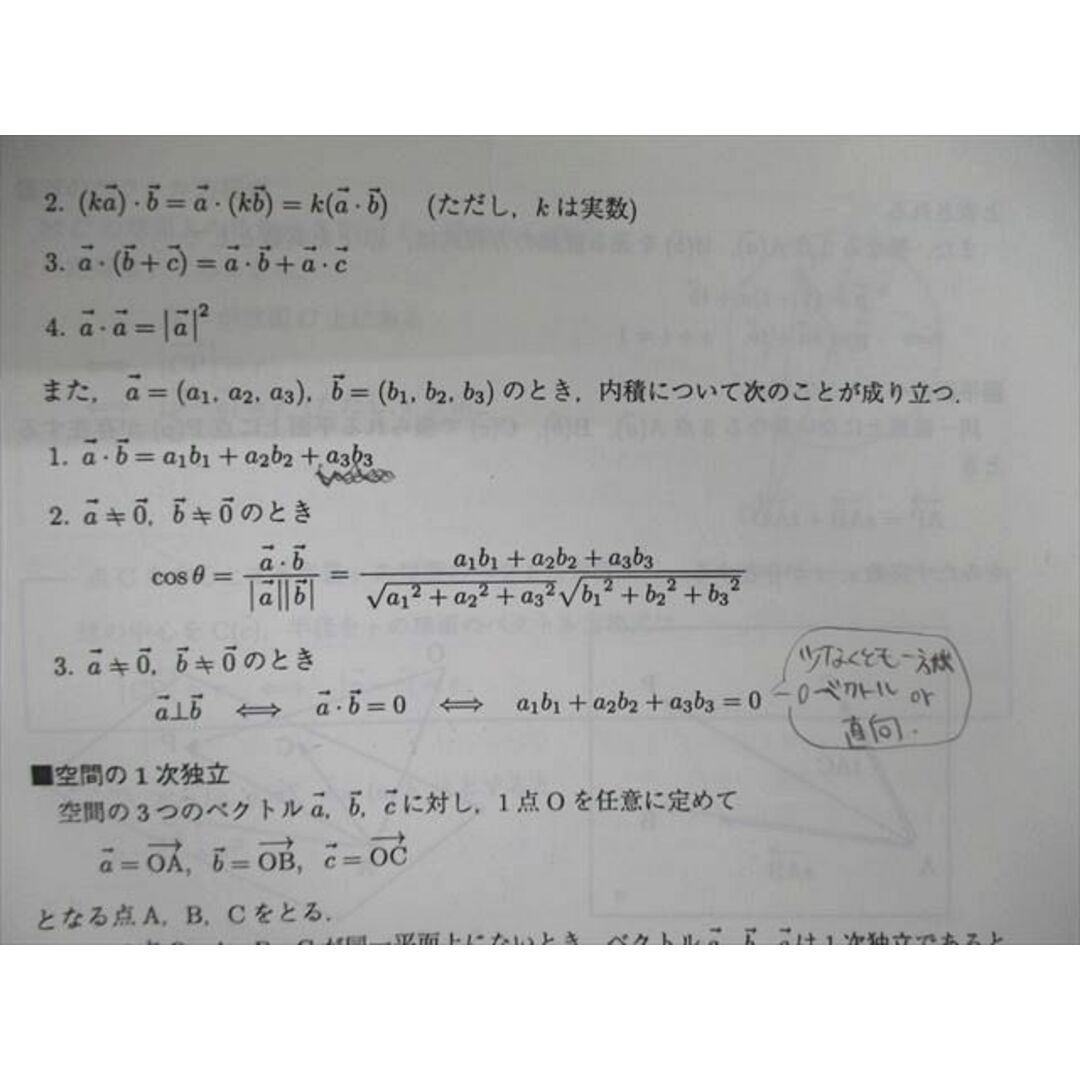 2. (k\vec{a})・\vec{b} = \vec{a}・(k\vec{b}) = k(\vec{a}・\vec{b}) (ただし, k は実数)
3. \vec{a}・(\vec{b}+\vec{c}) = \vec{a}・\vec{b}+\vec{a}・\vec{c}
4. \vec{a}・\vec{a} = |\vec{a}|²
また, \vec{a} = (a₁, a₂, a₃), \vec{b} = (b₁, b₂, b₃) のとき, 内積について次のことが成り立つ.
1. \vec{a}・\vec{b} = a₁b₁ + a₂b₂ + a₃b₃
2. \vec{a} ≠ \vec{0}, \vec{b} ≠ \vec{0} のとき
cos θ = \frac{\vec{a}・\vec{b}}{|\vec{a}||\vec{b}|} = \frac{a₁b₁ + a₂b₂ + a₃b₃}{\sqrt{a₁² + a₂² + a₃²}\sqrt{b₁² + b₂² + b₃²}}
3. \vec{a} ≠ \vec{0}, \vec{b} ≠ \vec{0} のとき
\vec{a}⊥\vec{b} ⟺ \vec{a}・\vec{b} = 0 ⟺ a₁b₁ + a₂b₂ + a₃b₃ = 0
少なくとも一方が
0ベクトル or
直向.
■空間の1次独立
空間の3つのベクトル \vec{a}, \vec{b}, \vec{c} に対し, 1点Oを任意に定めて
\vec{a} = \overrightarrow{OA}, \vec{b} = \overrightarrow{OB}, \vec{c} = \overrightarrow{OC}
となる点A, B, Cをとる.
が同一平面上にないとき, ベクトル \vec{a}, \vec{b}, \vec{c} は1次独立であると